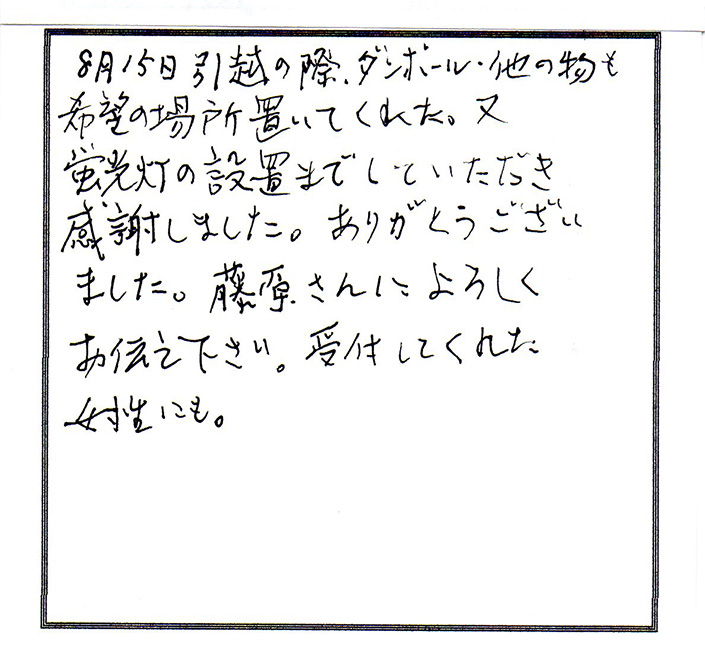 8月15日引越の際、ダンボール・他の物も
希望の場所置いてくれた。又
蛍光灯の設置までしていただき
感謝しました。ありがとうござい
ました。藤原さんによろしく
お伝え下さい。受付してくれた
女性にも。